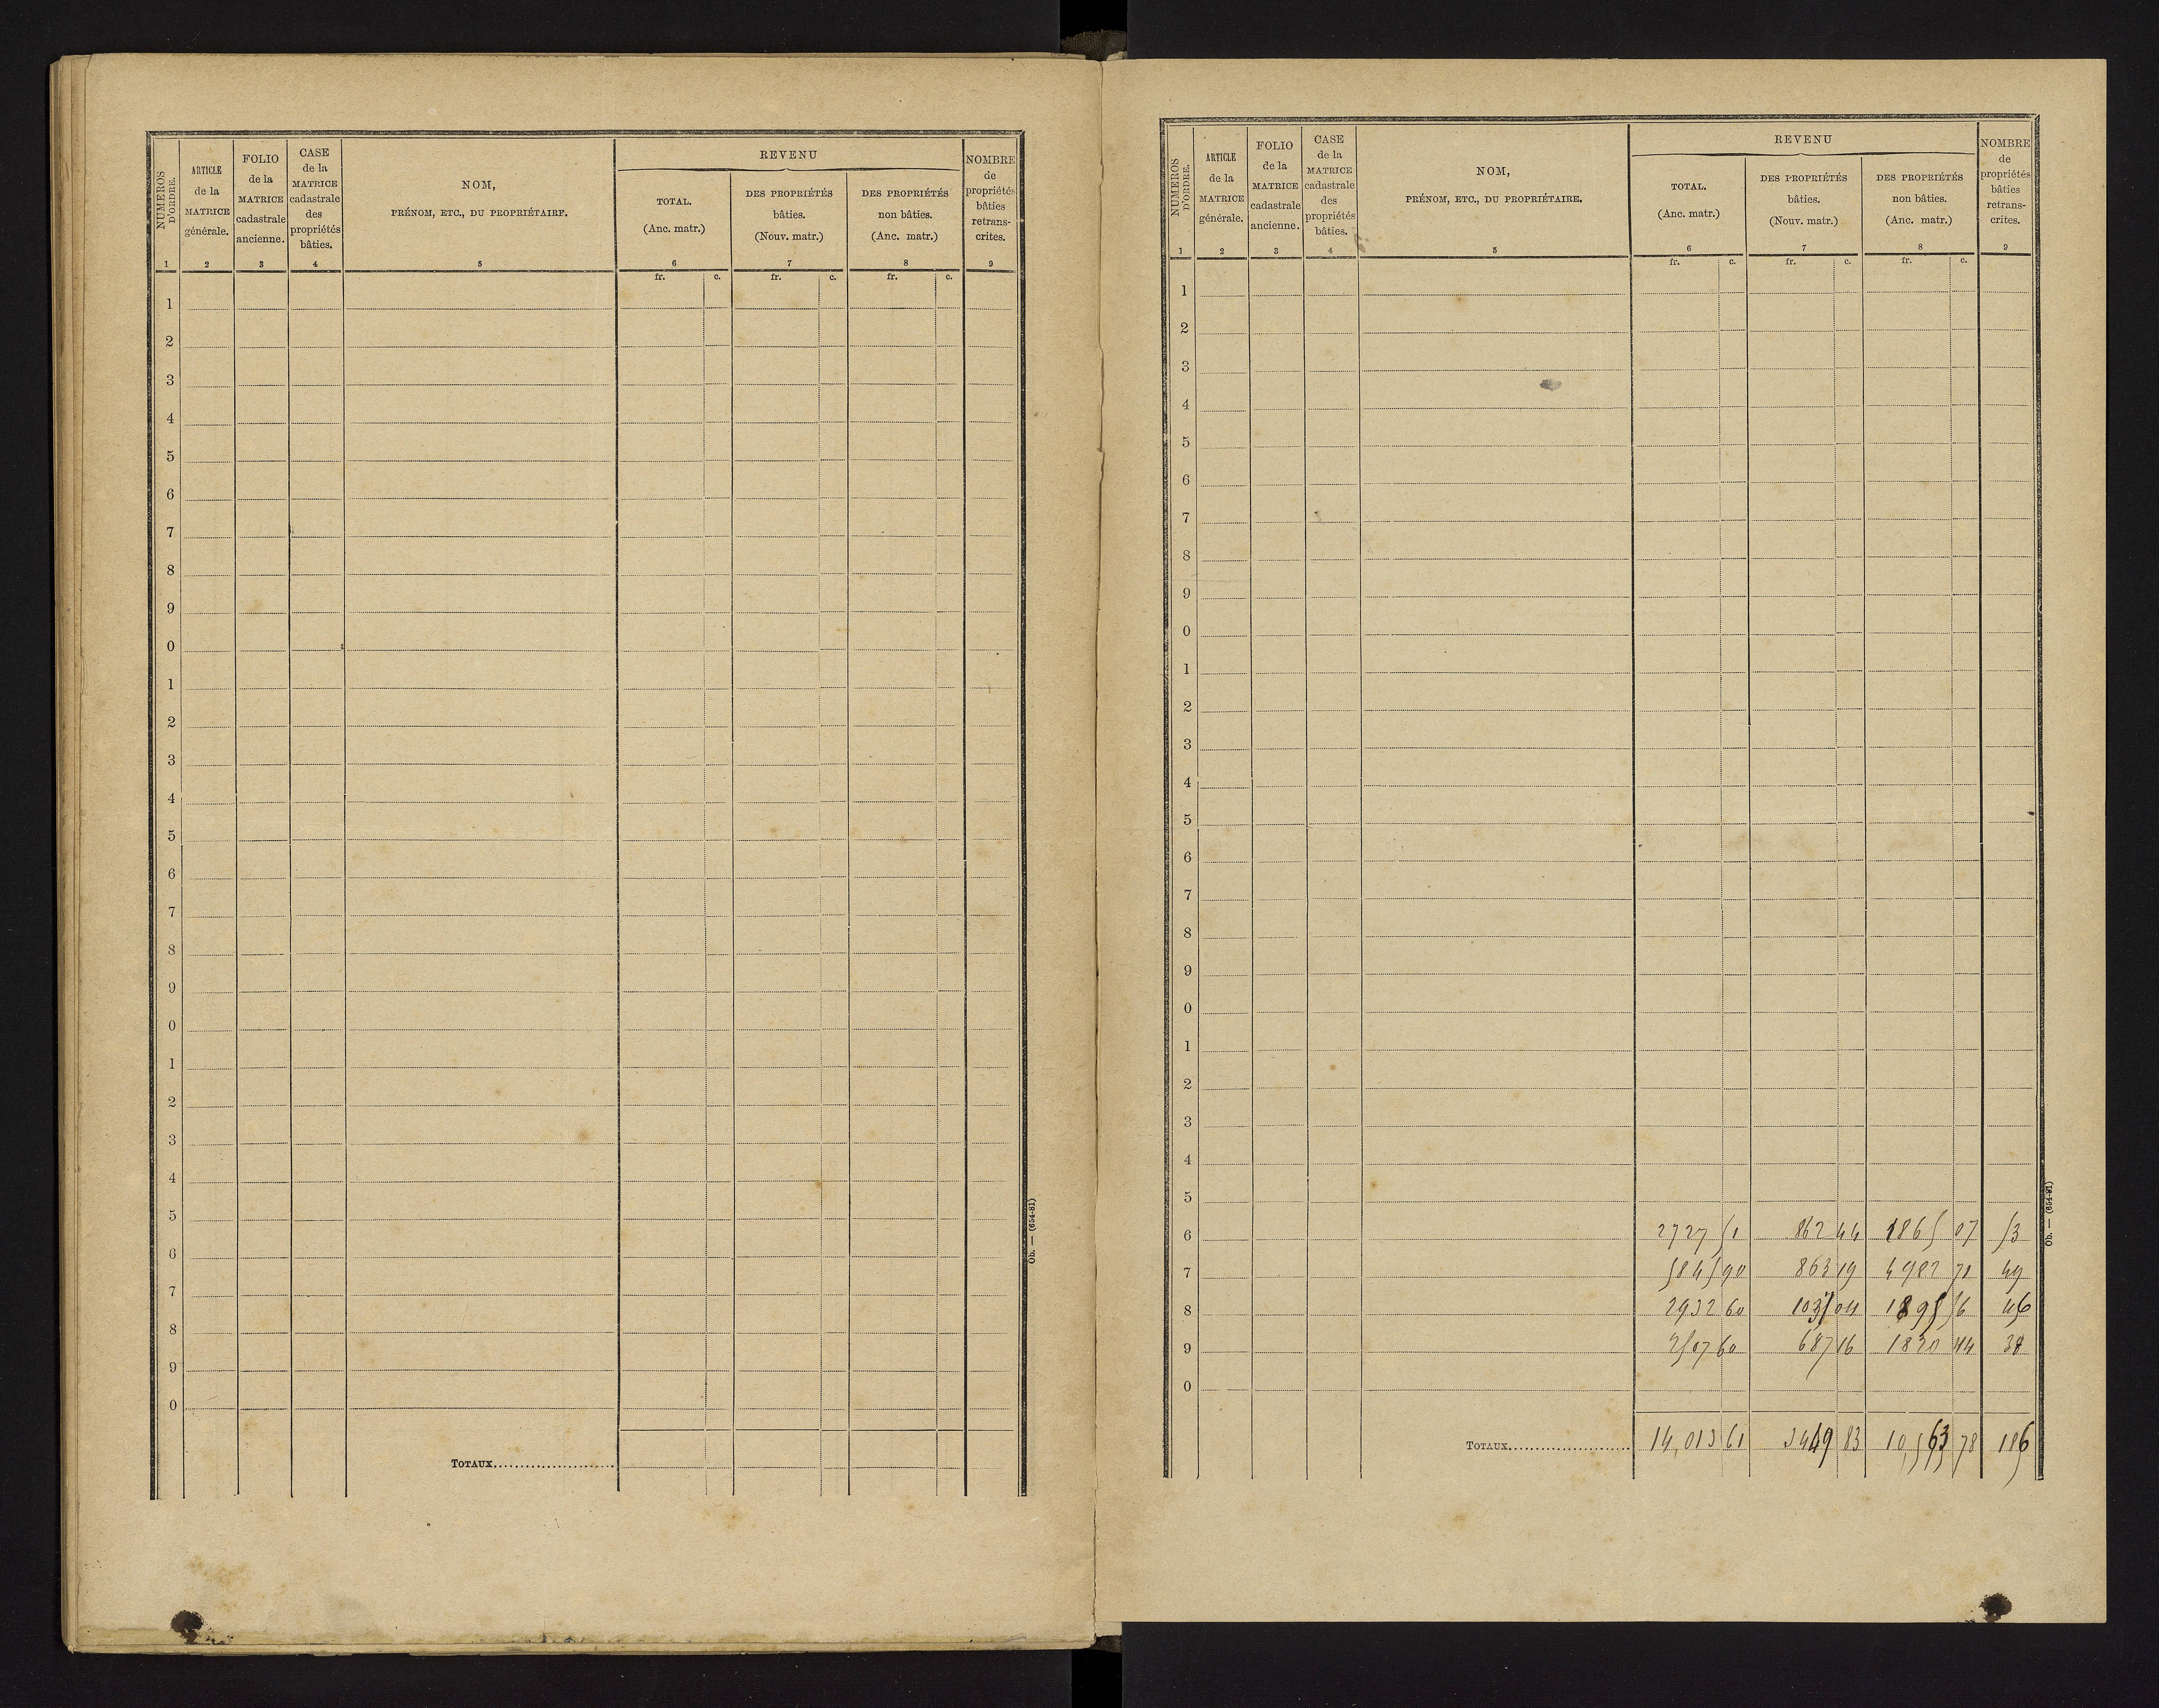 NUMÉROS D'ORDRE.
ARTICLE
de la
MATRICE
générale.
FOLIO
de la
MATRICE
cadastrale
ancienne.
CASE
de la
MATRICE
cadastrale
des
propriétés
bâties.
NOM,
PRÉNOM, ETC., DU PROPRIÉTAIRE.
REVENU
TOTAL.
(Anc. matr.)
DES PROPRIÉTÉS
bâties.
(Nouv. matr.)
DES PROPRIÉTÉS
non bâties.
(Anc. matr.)
NOMBRE
de
propriétés
bâties
retrans-
crites.
1 2 3 4 5 6 7 8 9
fr. c. fr. c. fr. c.
1
2
3
4
5
6
7
8
9
0
1
2
3
4
5
6
7
8
9
0
1
2
3
4
5
6
7
8
9
0
TOTAUX
Ob. — (654-81)
NUMÉROS D'ORDRE.
ARTICLE
de la
MATRICE
générale.
FOLIO
de la
MATRICE
cadastrale
ancienne.
CASE
de la
MATRICE
cadastrale
des
propriétés
bâties.
NOM,
PRÉNOM, ETC., DU PROPRIÉTAIRE.
REVENU
TOTAL.
(Anc. matr.)
DES PROPRIÉTÉS
bâties.
(Nouv. matr.)
DES PROPRIÉTÉS
non bâties.
(Anc. matr.)
NOMBRE
de
propriétés
bâties
retrans-
crites.
1 2 3 4 5 6 7 8 9
fr. c. fr. c. fr. c.
1
2
3
4
5
6
7
8
9
0
1
2
3
4
5
6
7
8
9
0
1
2
3
4
5
6 2727 51 862 44 1865 07 53
7 5845 90 863 19 4982 71 49
8 2932 60 1037 04 1895 56 46
9 2507 60 687 16 1820 44 38
0
TOTAUX 14,013 61 3449 83 10,563 78 186
Ob. — (654-81)